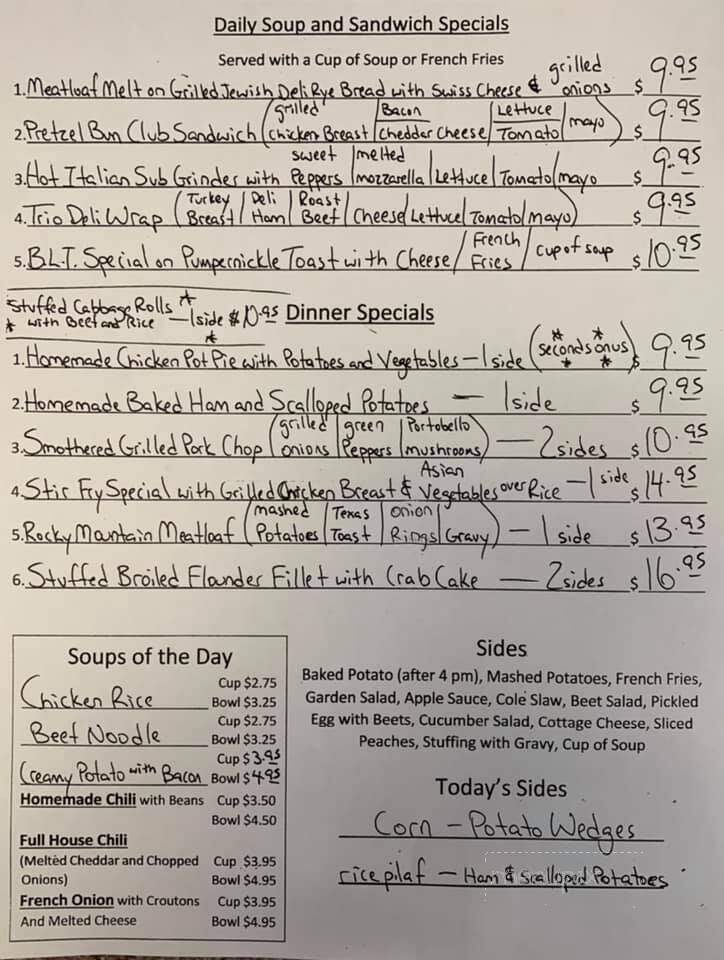 Daily Soup and Sandwich Specials
Served with a Cup of Soup or French Fries
1. Meatloaf Melt on Grilled Jewish Deli Rye Bread with Swiss Cheese & grilled onions $ 9.95
2. Pretzel Bun Club Sandwich (grilled chicken Breast / Bacon / cheddar cheese / Lettuce / Tomato / mayo) $ 9.95
3. Hot Italian Sub Grinder with sweet Peppers / melted mozzarella / Lettuce / Tomato / mayo $ 9.95
4. Trio Deli Wrap (Turkey Breast / Deli Ham / Roast Beef / Cheese / Lettuce / Tomato / mayo) $ 9.95
5. B.L.T. Special on Pumpernickle Toast with Cheese / French Fries / cup of soup $ 10.95
Stuffed Cabbage Rolls *
* with Beef and Rice — 1 side $ 10.95
*
Dinner Specials
1. Homemade Chicken Pot Pie with Potatoes and Vegetables — 1 side (* seconds on us *) $ 9.95
2. Homemade Baked Ham and Scalloped Potatoes — 1 side $ 9.95
3. Smothered Grilled Pork Chop (grilled onions / green Peppers / Portobello mushrooms) — 2 sides $ 10.95
4. Stir Fry Special with Grilled Chicken Breast & Asian Vegetables over Rice — 1 side $ 14.95
5. Rocky Mountain Meatloaf (mashed Potatoes / Texas Toast / onion Rings / Gravy) — 1 side $ 13.95
6. Stuffed Broiled Flounder Fillet with Crab Cake — 2 sides $ 16.95
Soups of the Day
Chicken Rice Cup $2.75
Bowl $3.25
Beef Noodle Cup $2.75
Bowl $3.25
Creamy Potato with Bacon Cup $3.95
Bowl $4.95
Homemade Chili with Beans Cup $3.50
Bowl $4.50
Full House Chili
(Melted Cheddar and Chopped Cup $3.95
Onions) Bowl $4.95
French Onion with Croutons Cup $3.95
And Melted Cheese Bowl $4.95
Sides
Baked Potato (after 4 pm), Mashed Potatoes, French Fries,
Garden Salad, Apple Sauce, Cole Slaw, Beet Salad, Pickled
Egg with Beets, Cucumber Salad, Cottage Cheese, Sliced
Peaches, Stuffing with Gravy, Cup of Soup
Today's Sides
Corn — Potato Wedges
rice pilaf — Ham & Scalloped Potatoes